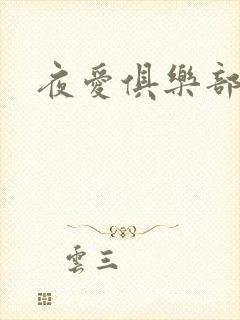 夜愛俱樂部
雲三